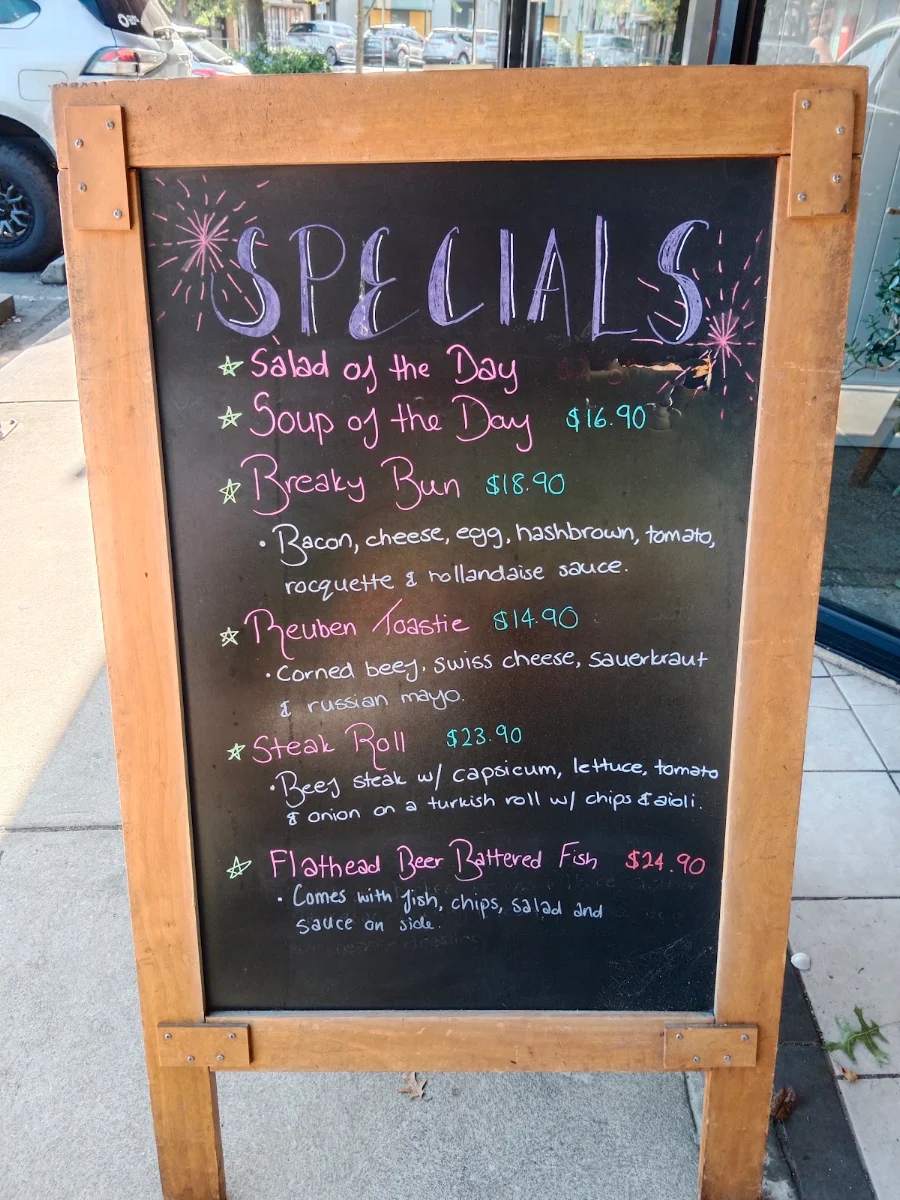 SPECIALS
Salad of the Day
Soup of the Day $16.90
Breaky Bun $18.90
• Bacon, cheese, egg, hashbrown, tomato,
rocquette & hollandaise sauce.
Reuben Toastie $14.90
• Corned beef, swiss cheese, sauerkraut
& russian mayo.
Steak Roll $23.90
• Beef steak w/ capsicum, lettuce, tomato
& onion on a turkish roll w/ chips & aioli.
Flathead Beer Battered Fish $24.90
• Comes with fish, chips, salad and
sauce on side.